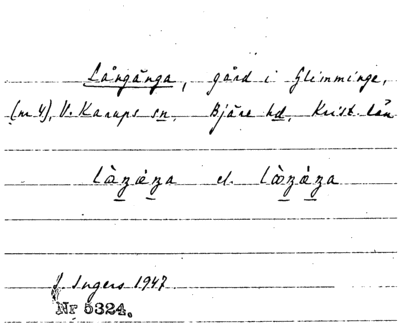 Långånga, gård i Glimminge,
(nr 4), V. Karups sn. Bjäre hd. Krist. län
el.
J. Ingers 1947
Nr 5324.